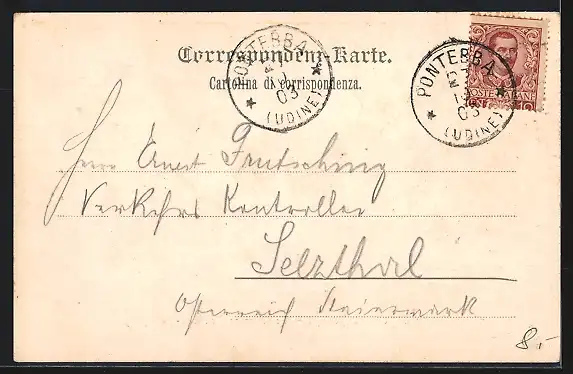 Correspondenz-Karte.
Cartolina di corrispondenza.
PONTEBBA
(UDINE)
03
PONTEBBA
(UDINE)
03
POSTE ITALIANE
10
Herrn Ernest
Verkehrs Kontrollor
Selzthal
Österreich Steiermark
8.-